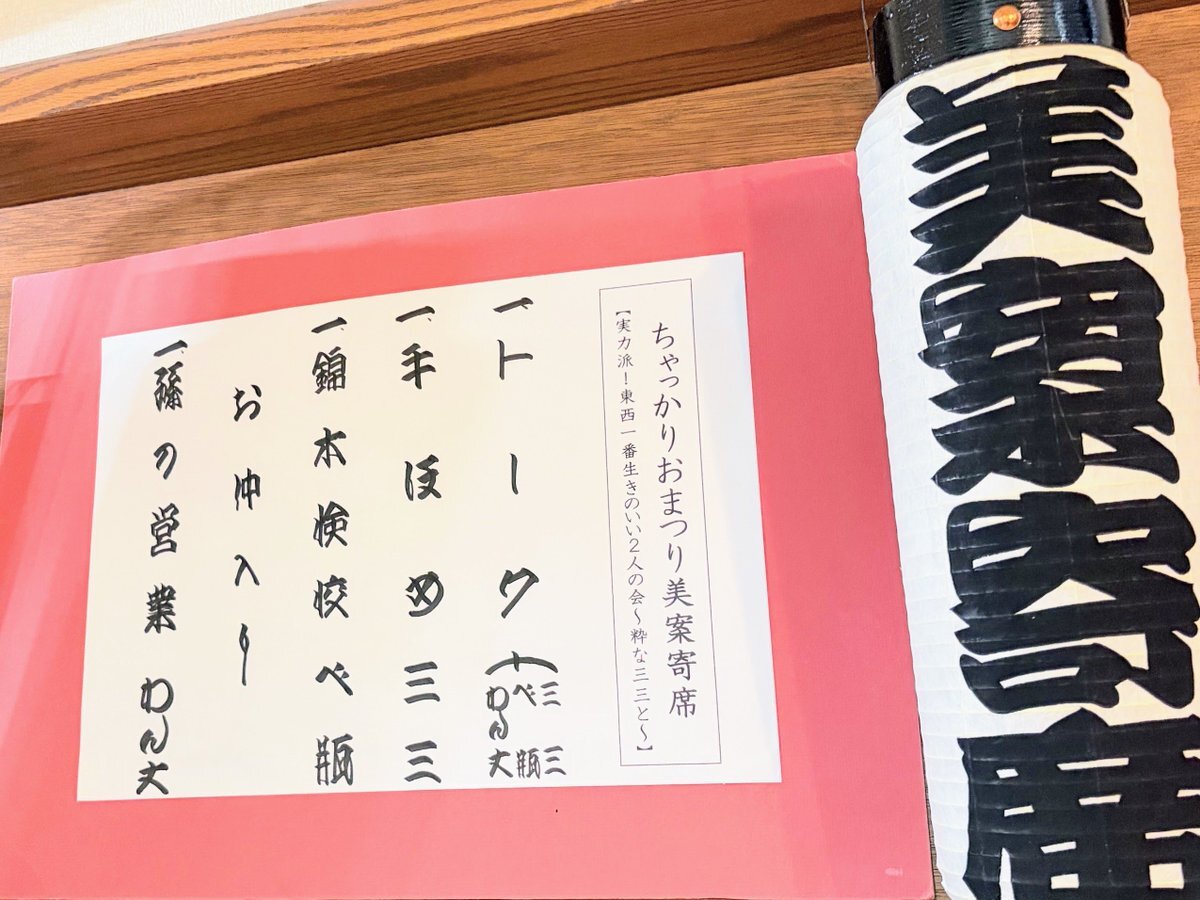 美案寄席
ちゃっかりおまつり美案寄席
【実力派!東西一番生きのいい2人の会~粋な三三と~】
一、トーク(三三
べ瓶
わん丈
一、手ほめ 三三
一、錦本検校 べ瓶
お仲入り
一、孫の営業 わん丈